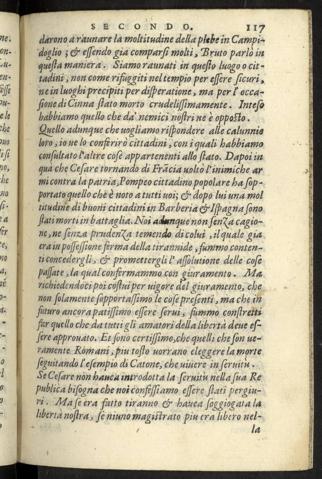 SECONDO. 117
darono a raunare la moltitudine della plebe in Campi
doglio; & essendo gia comparsi molti, Bruto parlò in
questa maniera. Siamo raunati in questo luogo o cit-
tadini, non come rifuggiti nel tempio per essere sicuri,
ne in luoghi precipiti per disperatione, ma per l'occa
sione di Cinna stato morto crudelissimamente. Inteso
habbiamo quello che da nemici nostri ne è opposto.
Quello adunque che vogliamo rispondere alle calunnie
loro, io ne lo conferirò cittadini, con i quali habbiamo
consultato l'altre cose appartenenti allo stato. Dapoi in
qua che Cesare tornando di Frãcia voltò l'inimiche ar
mi contra la patria, Pompeo cittadino popolare ha sop-
portato quello che è noto a tutti voi; & dopo lui una mol
titudine di buoni cittadini in Barberia & Ispagna sono
stati morti in battaglia. Noi adunque non senza cagio-
ne, ne senza prudenza temendo di colui, il quale gia
era in possessione ferma della tirannide, summo conten-
ti concedergli, & promettergli l'assolutione delle cose
passate, la qual confermammo con giuramento. Ma
richiedendoci poi costui per vigore del giuramento, che
non solamente sopportassimo le cose presenti, ma che in
futuro ancora patissimo essere servi, summo constretti
far quello che da tutti gli amatori della libertà deve es-
sere approvato. Et sono certissimo, che quelli che son ve-
ramente Romani, piu tosto vorrano eleggere la morte
seguitando l'esempio di Catone, che vivere in servitù.
Se Cesare non haveva introdotta la servitù nella sua Re
publica bisogna che noi confessiamo essere stati pergiu-
ri. Ma se era fatto tiranno & havea soggiogata la
libertà nostra, se niuno magistrato piu era libero nel-
la